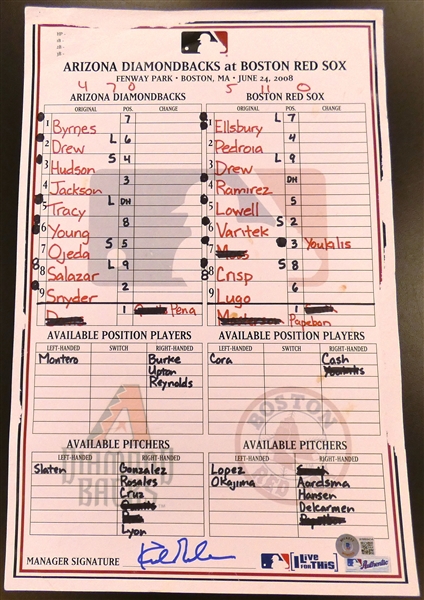 ARIZONA DIAMONDBACKS at BOSTON RED SOX
FENWAY PARK • BOSTON, MA • JUNE 24, 2008
4 7 0 5 11 0
ARIZONA DIAMONDBACKS BOSTON RED SOX
ORIGINAL POS. CHANGE ORIGINAL POS. CHANGE
1 Byrnes 7 1 Ellsbury L 7
2 Drew L 6 2 Pedroia 4
3 Hudson S 4 3 Drew L 9
4 Jackson 3 4 Ramirez DH
5 Tracy L DH 5 Lowell 5
6 Young 8 6 Varitek S 2
7 Ojeda S 5 7 3 Youkilis
8 Salazar L 9 8 Crisp S 8
9 Snyder 2 9 Lugo 6
1 Pena 1 Papelbon
AVAILABLE POSITION PLAYERS AVAILABLE POSITION PLAYERS
LEFT-HANDED SWITCH RIGHT-HANDED LEFT-HANDED SWITCH RIGHT-HANDED
Montero Burke Cora Cash
Upton
Reynolds
AVAILABLE PITCHERS AVAILABLE PITCHERS
LEFT-HANDED RIGHT-HANDED LEFT-HANDED RIGHT-HANDED
Slaten Gonzalez Lopez
Rosales Okajima Aardsma
Cruz Hansen
Delcarmen
Lyon
ARIZONA DIAMONDBACKS
BOSTON RED SOX
MANAGER SIGNATURE
I Live FOR THIS!
Authentic